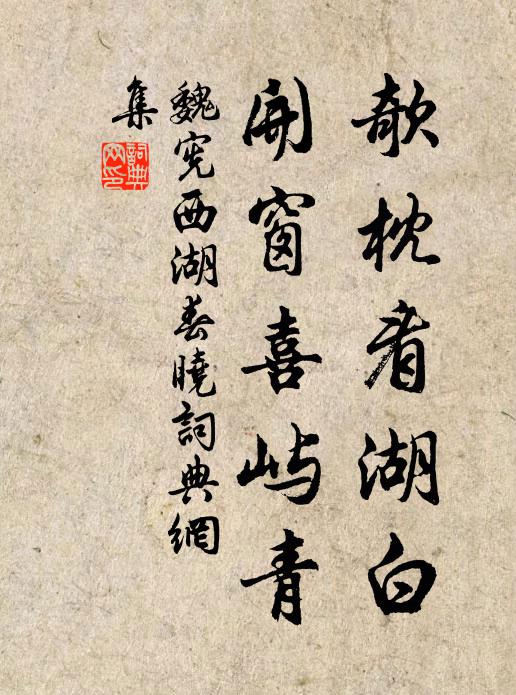 欹枕看湖白
開窗喜嶼青
魏宪西湖春曉詞典網
集
詞典網印